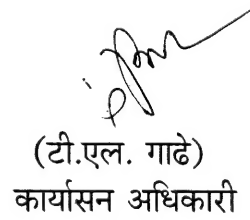 (टी.एल. गाढे)
कार्यासन अधिकारी